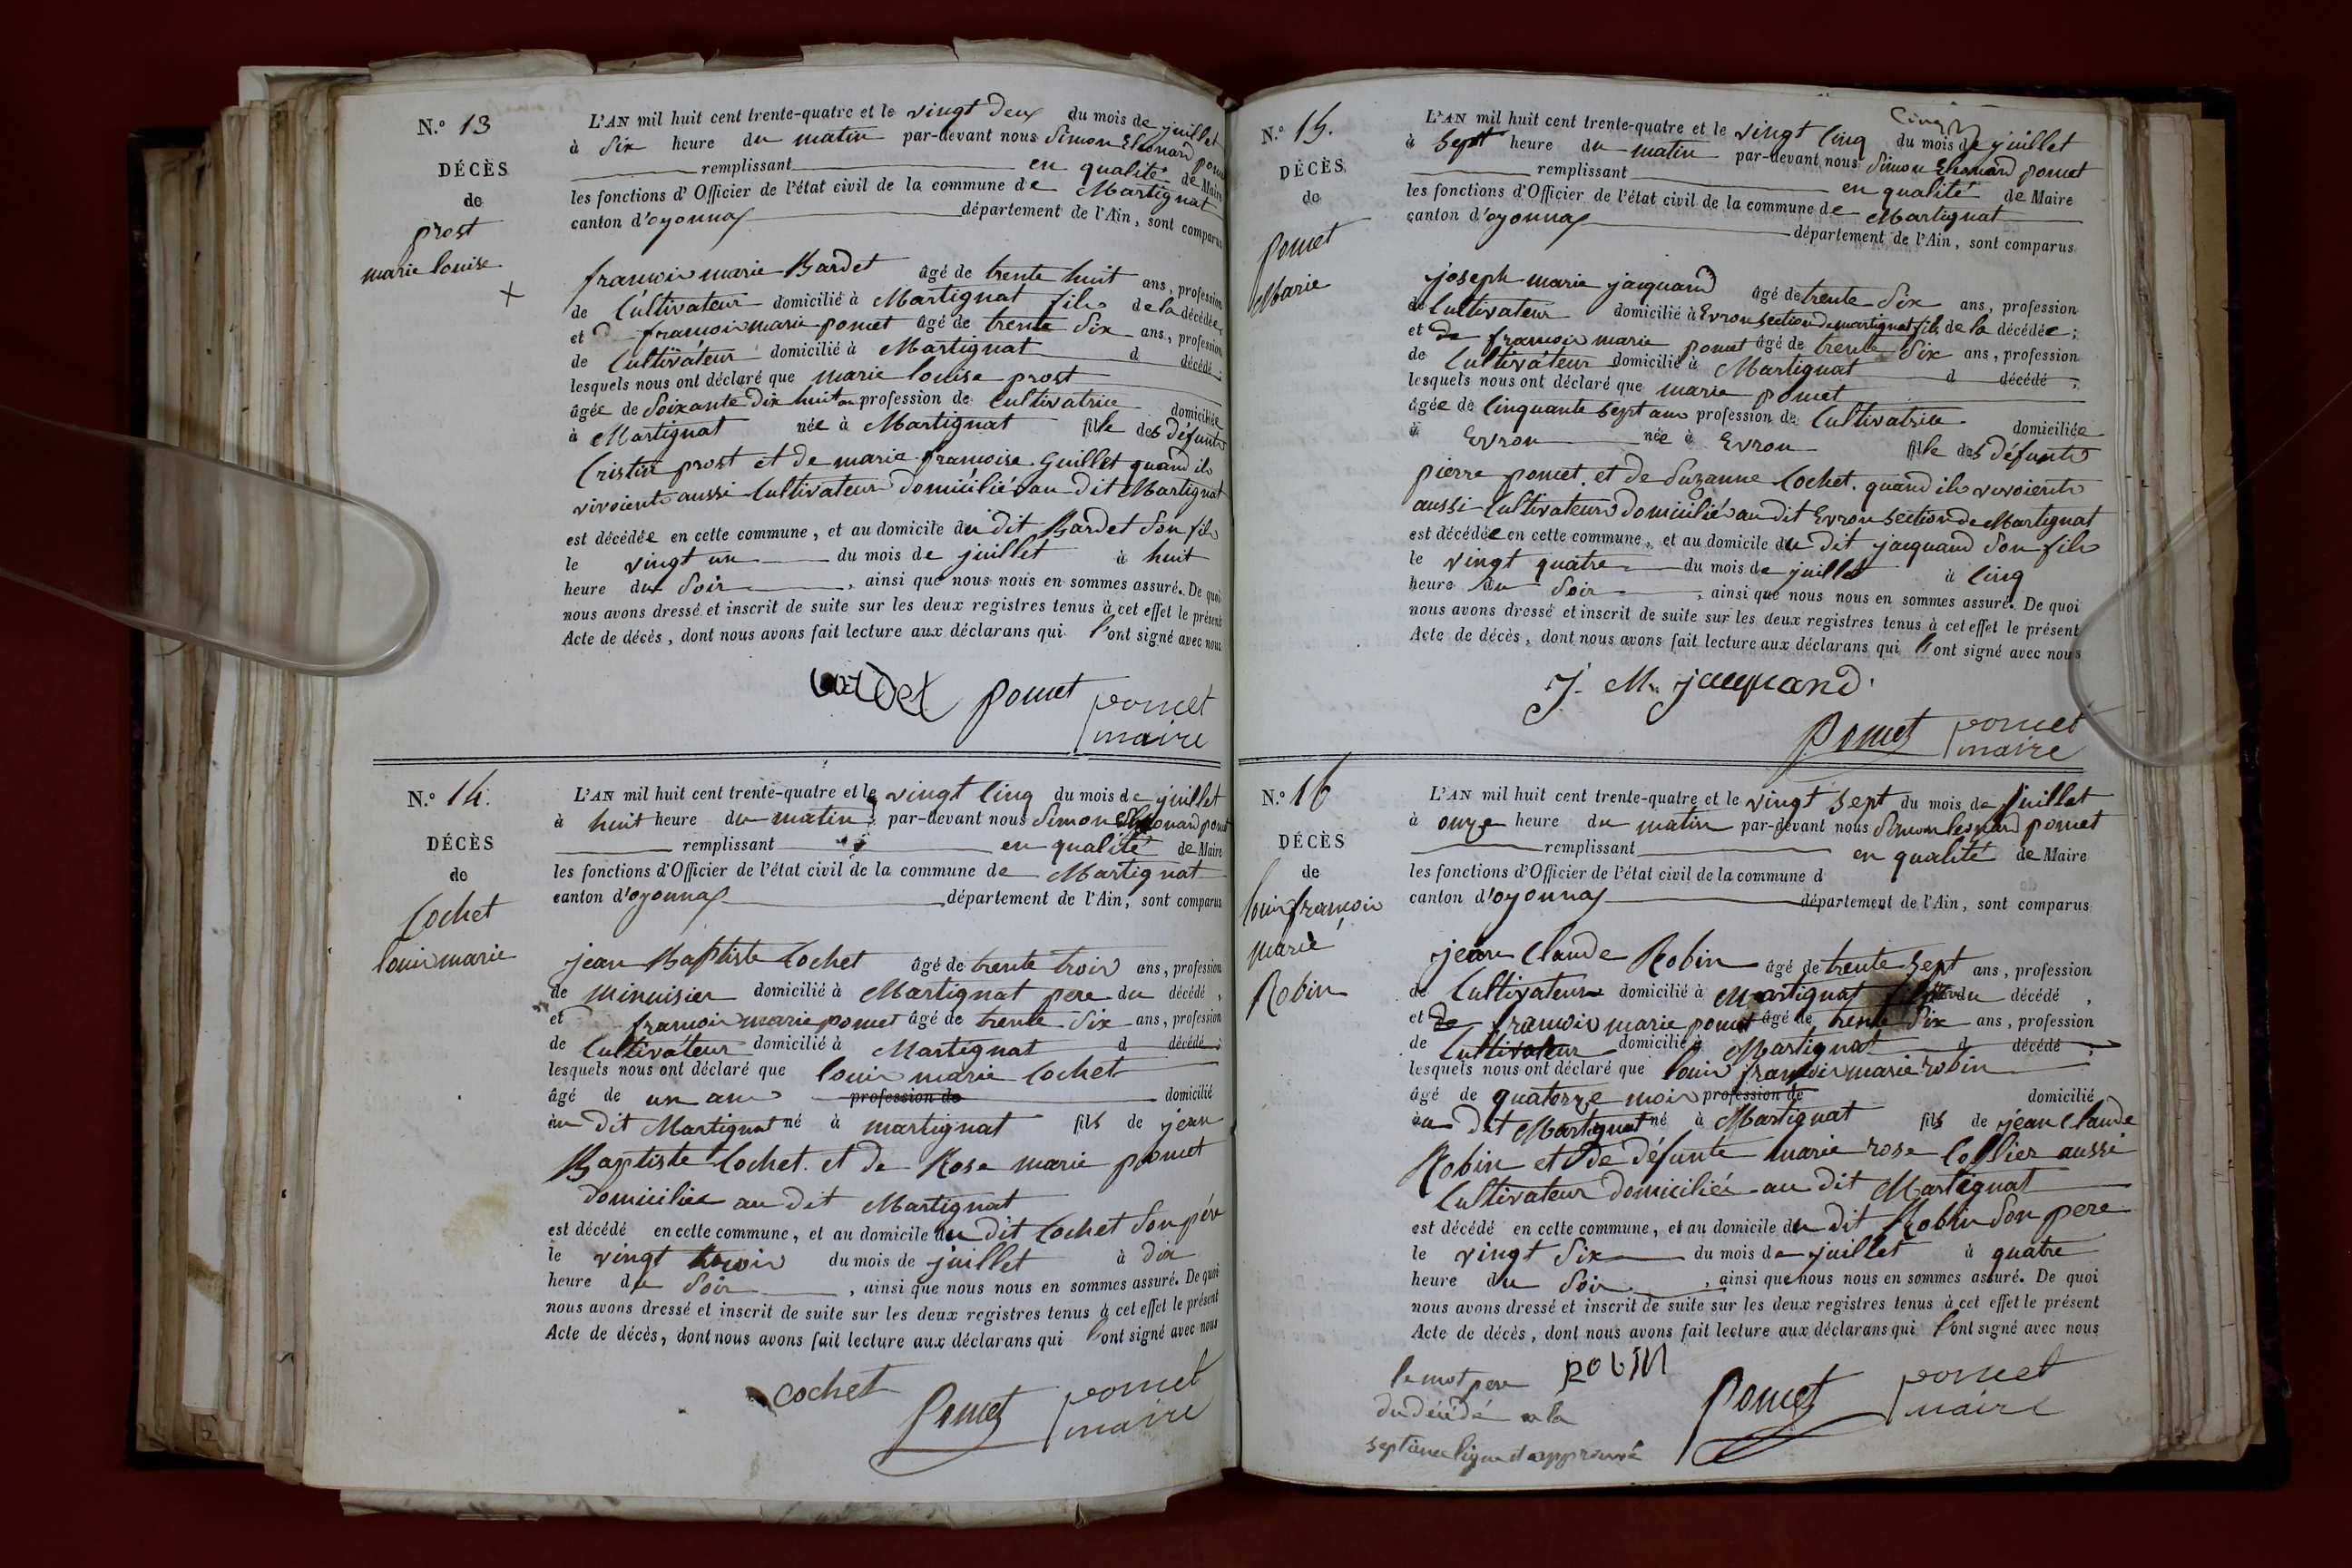 N.o 13
DÉCÈS
de
prost
marie louise
L'AN mil huit cent trente-quatre et le vingt deux du mois de juillet
à Six heure du matin par-devant nous Simon Eleonard pomet
remplissant en qualité de Maire
les fonctions d'Officier de l'état civil de la commune de Martignat
canton d'oyonnax département de l'Ain, sont comparus
francois marie Bardet âgé de trente huit ans, profession
de Cultivateur domicilié à Martignat fils de la décédée,
et francois marie pomet âgé de trente Six ans, profession
de Cultivateur domicilié à Martignat d décédé ;
lesquels nous ont déclaré que marie louise prost
âgée de Soixante Dix huit an profession de Cultivatrice domiciliée
à Martignat née à Martignat fille des défunts
Cristin prost et de marie francoise Guillet quand ils
vivoients aussi Cultivateurs domiciliés au dit Martignat
est décédée en cette commune, et au domicile du dit Bardet Son fils
le vingt un du mois de juillet à huit
heure du Soir, ainsi que nous nous en sommes assuré. De quoi
nous avons dressé et inscrit de suite sur les deux registres tenus à cet effet le présent
Acte de décès, dont nous avons fait lecture aux déclarans qui l'ont signé avec nous
bardet pomet pomet
maire
N.o 14.
DÉCÈS
de
Cochet
louis marie
L'AN mil huit cent trente-quatre et le vingt Cinq du mois de juillet
à huit heure du matin par-devant nous Simon Eleonard pomet
remplissant en qualité de Maire
les fonctions d'Officier de l'état civil de la commune de Martignat
canton d'oyonnax département de l'Ain, sont comparus
jean Baptiste Cochet âgé de trente trois ans, profession
de Minuisier domicilié à Martignat pere du décédé,
et francois marie pomet âgé de trente Six ans, profession
de Cultivateur domicilié à Martignat d décédé ;
lesquels nous ont déclaré que louis marie Cochet
âgé de un ans profession de domicilié
au dit Martignat né à martignat fils de jean
Baptiste Cochet et de Rose marie pomet
domiciliés au dit Martignat
est décédé en cette commune, et au domicile du dit Cochet Son pére
le vingt trois du mois de juillet à dix
heure du Soir, ainsi que nous nous en sommes assuré. De quoi
nous avons dressé et inscrit de suite sur les deux registres tenus à cet effet le présent
Acte de décès, dont nous avons fait lecture aux déclarans qui l'ont signé avec nous
cochet Pomet pomet
maire
N.o 15.
DÉCÈS
de
pomet
Marie
Cinq
L'AN mil huit cent trente-quatre et le vingt Cinq du mois de juillet
à Sept heure du matin par-devant nous Simon Eleonard pomet
remplissant en qualité de Maire
les fonctions d'Officier de l'état civil de la commune de Martignat
canton d'oyonnax département de l'Ain, sont comparus
joseph marie jacquand âgé de trente Six ans, profession
de Cultivateur domicilié à Evron Section de martignat fils de la décédée ;
et de francois marie pomet âgé de trente Six ans, profession
de Cultivateur domicilié à Martignat d décédé ;
lesquels nous ont déclaré que marie pomet
âgée de Cinquante Sept ans profession de Cultivatrice domiciliée
à Evron née à Evron fille des défunts
pierre pomet et de Suzanne Cochet. quand ils vivoients
aussi Cultivateurs domiciliés au dit Evron Section de Martignat
est décédée en cette commune, et au domicile du dit jacquand Son fils
le vingt quatre du mois de juillet à Cinq
heure du Soir, ainsi que nous nous en sommes assuré. De quoi
nous avons dressé et inscrit de suite sur les deux registres tenus à cet effet le présent
Acte de décès, dont nous avons fait lecture aux déclarans qui l'ont signé avec nous
J. M. jacquand
Pomet pomet
maire
N.o 16
DÉCÈS
de
louis francois
marie
Robin
L'AN mil huit cent trente-quatre et le vingt Sept du mois de juillet
à onze heure du matin par-devant nous Simon leonard pomet
remplissant en qualité de Maire
les fonctions d'Officier de l'état civil de la commune d
canton d'oyonnax département de l'Ain, sont comparus
jean Claude Robin âgé de trente Sept ans, profession
de Cultivateur domicilié à Martignat du décédé,
et de francois marie pomet âgé de trente Six ans, profession
de Cultivateur domicilié à Martignat d décédé ;
lesquels nous ont déclaré que louis francois marie robin
âgé de quatorze mois profession de domicilié
au dit Martignat né à Martignat fils de jean Claude
Robin et de défunte marie rose Collier aussi
Cultivateur domiciliés au dit Martignat
est décédé en cette commune, et au domicile du dit Robin Son pere
le vingt Six du mois de juillet à quatre
heure du Soir, ainsi que nous nous en sommes assuré. De quoi
nous avons dressé et inscrit de suite sur les deux registres tenus à cet effet le présent
Acte de décès, dont nous avons fait lecture aux déclarans qui l'ont signé avec nous
le mot pere RObIN
du décédé a la Pomet pomet
septieme ligne et approuvé maire